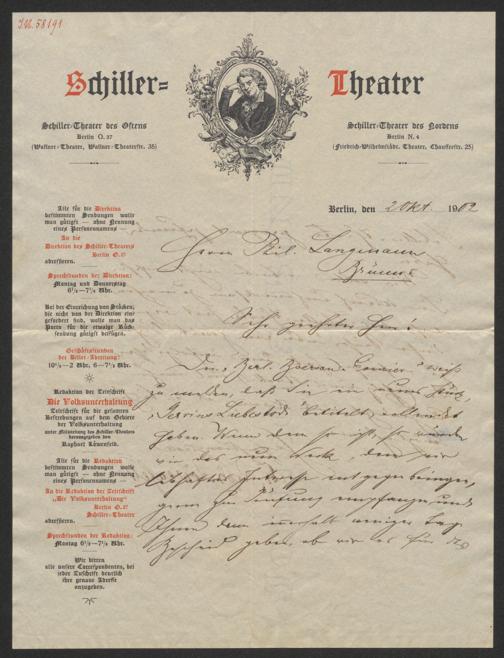 I.N. 58191
Schiller-Theater
Schiller-Theater des Ostens
Berlin O. 27
(Wallner-Theater, Wallner-Theaterstr. 35)
Schiller-Theater des Nordens
Berlin N. 4
(Friedrich-Wilhelmstädt. Theater, Chausseestr. 25)
Berlin, den 2 Okt. 1902
Herrn Phil. Langmann
Brünn
Sehr geehrter Herr!
Der „Berl. Börsen-Courier“ weiß
zu melden, daß Sie ein neues Stück,
Liebestod betitelt, vollendet
haben. Wenn dem so ist, so würden
wir das neue Werk, dem wir
Interesse entgegenbringen,
gern zur Prüfung empfangen und
Ihnen dann innerhalb weniger Tage
Bescheid geben, ob wir es für das
Alle für die Direktion
bestimmten Sendungen wolle
man gütigst — ohne Nennung
eines Personennamens —
An die
Direktion des Schiller-Theaters
Berlin O. 27
adressieren.
Sprechstunden der Direktion:
Montag und Donnerstag
6½—7½ Uhr.
Bei der Einreichung von Stücken,
die nicht von der Direktion ein-
gefordert sind, wolle man das
Porto für die etwaige Rück-
sendung gütigst beifügen.
Geschäftsstunden
der Billet-Abteilung:
10½—2 Uhr, 6—7½ Uhr.
Redaktion der Zeitschrift
Die Volksunterhaltung
Zeitschrift für die gesamten
Bestrebungen auf dem Gebiete
der Volksunterhaltung
unter Mitwirkung des Schiller-Theaters
herausgegeben von
Raphael Löwenfeld.
Alle für die Redaktion
bestimmten Sendungen wolle
man gütigst — ohne Nennung
eines Personennamens —
An die Redaktion der Zeitschrift
„Die Volksunterhaltung“
Berlin O. 27
Schiller-Theater
adressieren.
Sprechstunden der Redaktion:
Montag 6½—7½ Uhr.
Wir bitten
alle unsere Correspondenten, bei
jeder Zuschrift deutlich
ihre genaue Adresse
anzugeben.